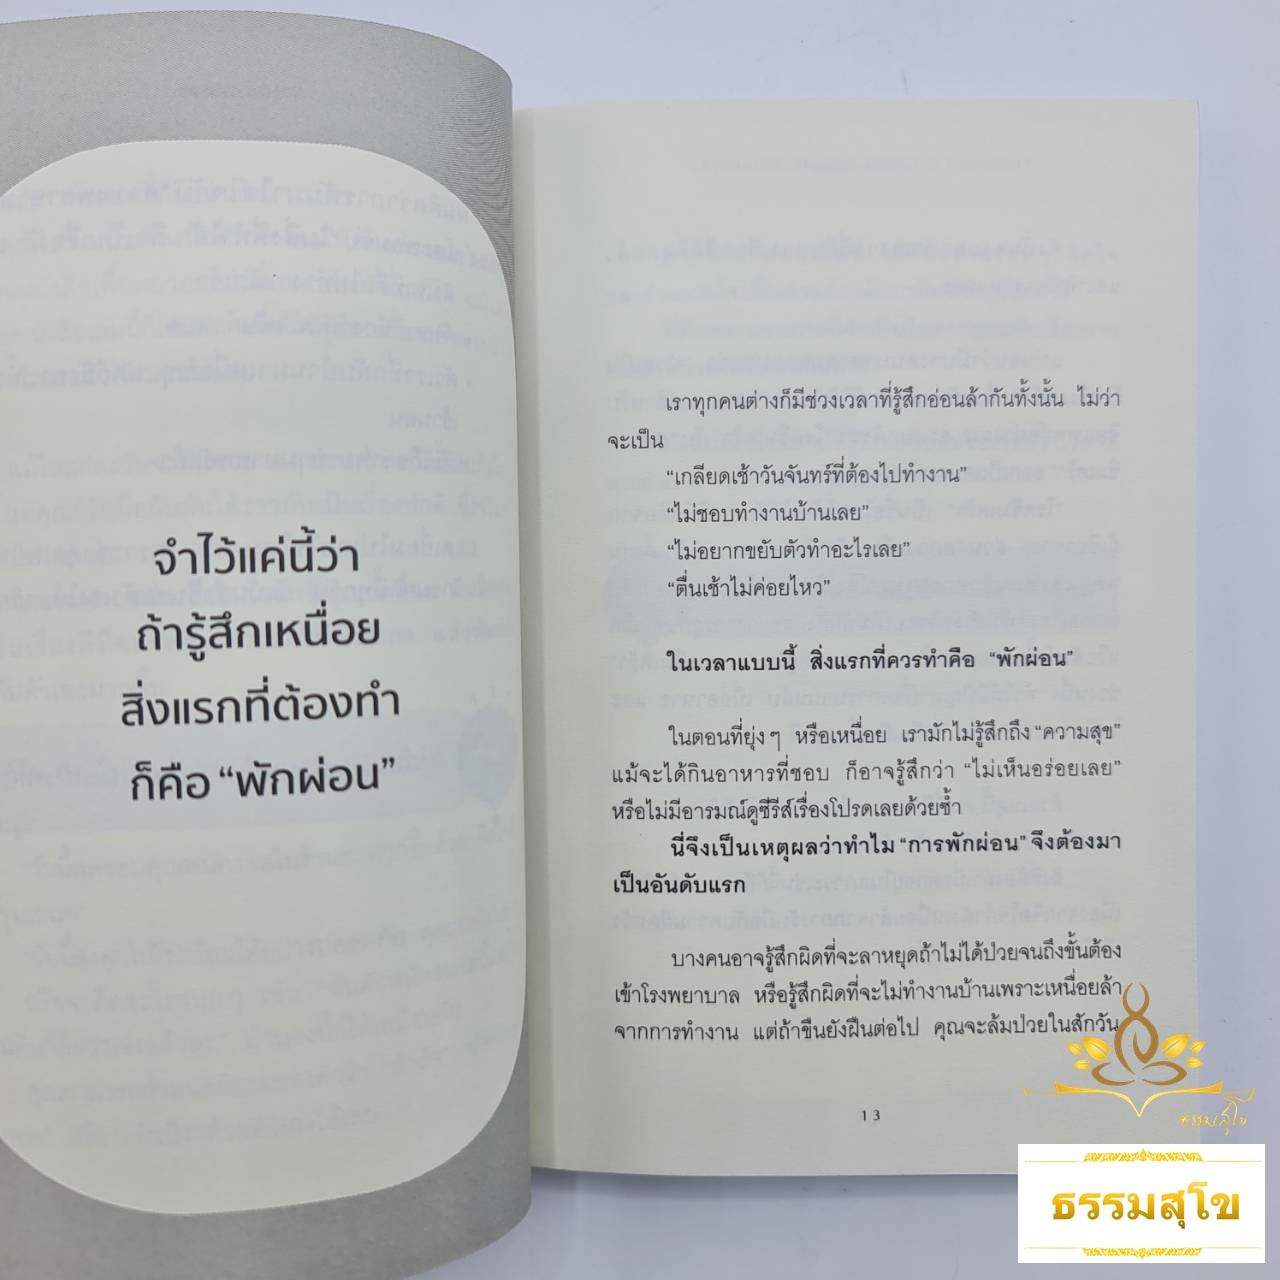 จำไว้แค่นี้ว่า
ถ้ารู้สึกเหนื่อย
สิ่งแรกที่ต้องทำ
ก็คือ “พักผ่อน”
เราทุกคนต่างก็มีช่วงเวลาที่รู้สึกอ่อนล้ากันทั้งนั้น ไม่ว่า
จะเป็น
“เกลียดเช้าวันจันทร์ที่ต้องไปทำงาน”
“ไม่ชอบทำงานบ้านเลย”
“ไม่อยากขยับตัวทำอะไรเลย”
“ตื่นเช้าไม่ค่อยไหว”
ในเวลาแบบนี้ สิ่งแรกที่ควรทำคือ “พักผ่อน”
ในตอนที่ยุ่งๆ หรือเหนื่อย เรามักไม่รู้สึกถึง “ความสุข”
แม้จะได้กินอาหารที่ชอบ ก็อาจรู้สึกว่า “ไม่เห็นอร่อยเลย”
หรือไม่มีอารมณ์ดูซีรีส์เรื่องโปรดเลยด้วยซ้ำ
นี่จึงเป็นเหตุผลว่าทำไม “การพักผ่อน” จึงต้องมา
เป็นอันดับแรก
บางคนอาจรู้สึกผิดที่จะลาหยุดถ้าไม่ได้ป่วยจนถึงขั้นต้อง
เข้าโรงพยาบาล หรือรู้สึกผิดที่จะไม่ทำงานบ้านเพราะเหนื่อยล้า
จากการทำงาน แต่ถ้าขืนยังฝืนต่อไป คุณจะล้มป่วยในสักวัน
13
ธรรมสุโข
ธรรมสุโข